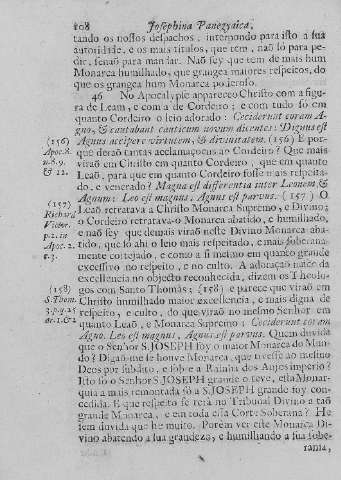 108 Josephina Panegyrica,
tando os nossos despachos, interpondo para isto a sua
autoridade, e os mais titulos, que tem, naõ só para pe-
dir, senaõ para mandar. Naõ sey que tem de mais hum
Monarca humilhado, que grangea maiores respeitos, do
que os grangea hum Monarca poderoso.
46 No Apocalypse appareceo Christo com a figu-
ra de Leam, e com a de Cordeiro; e com tudo só em
quanto Cordeiro o leio adorado: Ceciderunt coram A-
gno, & cantabant canticum novum dicentes: Dignus est
(156) Agnus accipere virtutem, & divinitatem. (156) E por-
Apoc. 8. que deraõ tantas acclamaçoens ao Cordeiro? Que mais
n. 8. 9. viraõ em Christo em quanto Cordeiro, que em quanto
& 12. Leaõ, para que em quanto Cordeiro fosse mais respeita-
do, e venerado? Magna est differentia inter Leonem &
Agnum: Leo est magnus, Agnus est parvus. (157) O
(157) Leaõ retratava a Christo Monarca Supremo, e Divino;
Richard o Cordeiro retratava-o Monarca abatido, e humilhado,
Victor. e naõ sey que demais viraõ neste Divino Monarca aba-
p. 2. in tido, que só ahi o leio mais respeitado, e mais soberana-
Apoc. 2. mente cortejado, e como a si mesmo em quanto grande
r. 3. excessivo no respeito, e no culto. A adoraçaõ nasce da
excellencia no objecto reconhecida, dizem os Theolo-
(158) gos com Santo Thomás; (158) e parece que viraõ em
S. Thom. Christo humilhado maior excellencia, e mais digna de
3. p. q. 25 respeito, e culto, do que viraõ no mesmo Senhor em
ar. 1. & 2 quanto Leaõ, e Monarca Supremo: Ceciderunt coram
Agno. Leo est magnus, Agnus est parvus. Quem duvida
que o Senhor S. JOSEPH foy o maior Monarca do Mun-
do? Digaõ-me se houve Monarca, que tivesse ao mesmo
Deos por subdito, e sob e a Rainha dos Anjos imperio?
Isto só o Senhor S. JOSEPH grande o teve, esta Monar-
quia a mais remontada só a S. JOSEPH grande foy con-
cedida. E que respeito se teria no Tribunal Divino a taõ
grande Monarca, e em toda essa Corte Soberana? He
sem duvida que he muito. Porém ver este Monarca Di-
vino abatendo a sua grandeza, e humilhando a sua sobe-
rania,